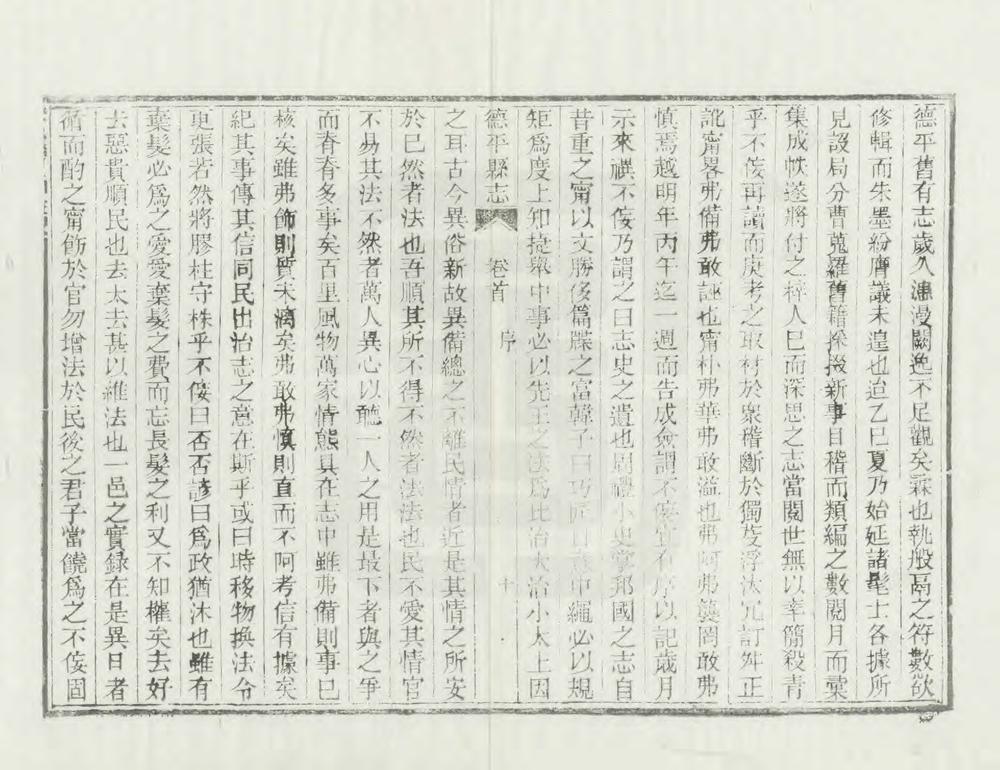 德平舊有志歲久漶漫闕逸不足觀矣霖也執般鬲之符數欲
修輯而朱墨紛膺議未遑也迨乙巳夏乃始延諸髦士各據所
見設局分曹蒐羅舊籍採掇新事目稽而類編之數閱月而稾
集成帙遂將付之梓人巳而深思之志當閱世無以幸簡殺青
乎不佞再讀而庚考之取材於衆稽斷於獨芟浮汰冗訂舛正
訛甯畧弗備弗敢誣也甯朴弗華弗敢溢也弗阿弗襲罔敢弗
慎焉越明年丙午迄一週而告成僉謂不佞宜有序以記歲月
示來禩不佞乃謂之曰志史之遺也周禮小史掌邦國之志自
昔重之甯以文勝侈篇牒之富韓子曰巧匠目意中繩必以規
矩爲度上知捷舉中事必以先王之法爲比治大治小太上因
德平縣志 卷首 序 十
之耳古今異俗新故異備總之不離民情者近是其情之所安
於已然者法也吾順其所不得不然者法法也民不愛其情官
不易其法不然者萬人異心以聽一人之用是最下者與之爭
而脊脊多事矣百里風物萬家情態具在志中雖弗備則事已
核矣雖弗飾則質未漓矣弗敢弗慎則直而不阿考信有據矣
紀其事傳其信同民出治志之意在斯乎或曰時移物換法令
更張若然將膠柱守株乎不佞曰否否諺曰爲政猶沐也雖有
棄髮必爲之愛愛棄髮之費而忘長髮之利又不知權矣去好
去惡貴順民也去太去甚以維法也一邑之實録在是異日者
循而酌之甯飭於官勿增法於民後之君子當饒爲之不佞固